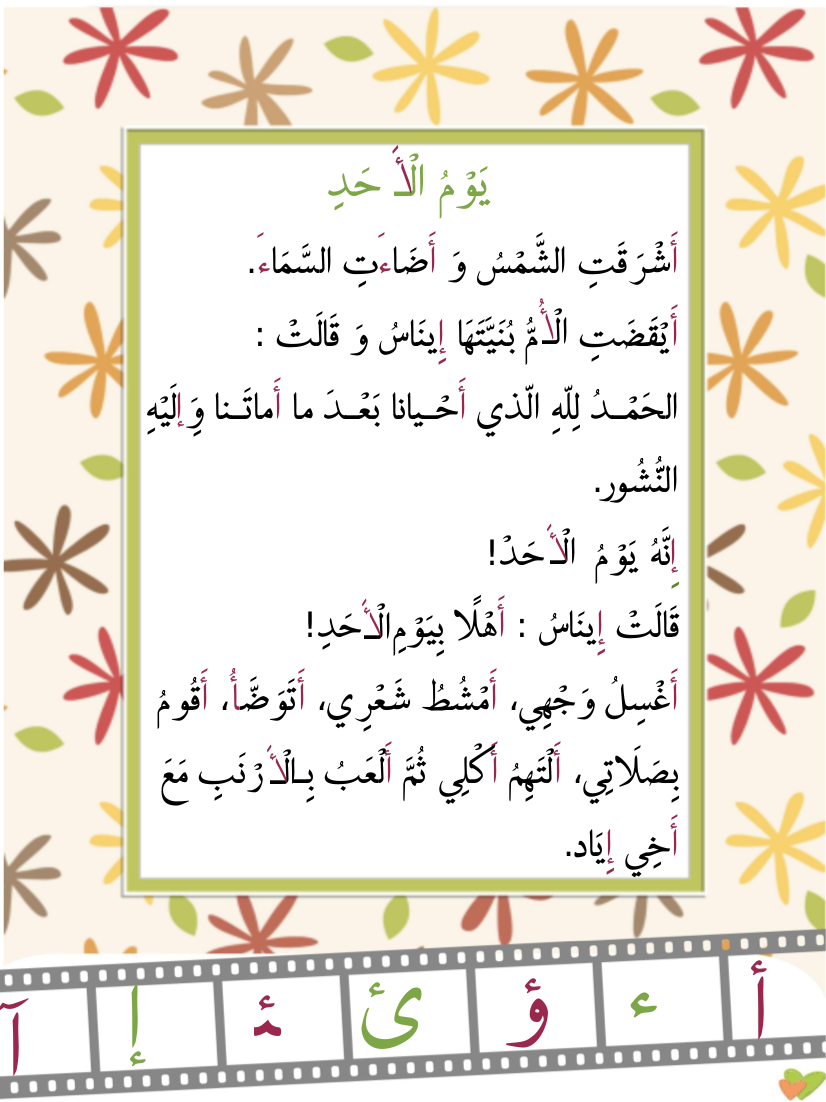 يَوْمُ الْأَحَدِ
أَشْرَقَتِ الشَّمْسُ وَ أَضَاءَتِ السَّمَاءَ.
أَيْقَضَتِ الْأُمُّ بُنَيَّتَهَا إِينَاسُ وَ قَالَتْ :
الحَمْـدُ لِلّهِ الّذي أَحْـيانا بَعْـدَ ما أَماتَـنا وَإلَيْهِ
النُّشُور.
إِنَّهُ يَوْمُ الْأَحَدْ!
قَالَتْ إِينَاسُ : أَهْلًا بِيَوْمِ الْأَحَدِ!
أَغْسِلُ وَجْهِي، أَمْشُطُ شَعْرِي، أَتَوَضَّأُ، أَقُومُ
بِصَلَاتِي، أَلْتَهِمُ أَكْلِي ثُمَّ أَلْعَبُ بِـالْأَرْنَبِ مَعَ
أَخِي إِيَاد.
أ ء ؤ ئ ـئـ إ آ